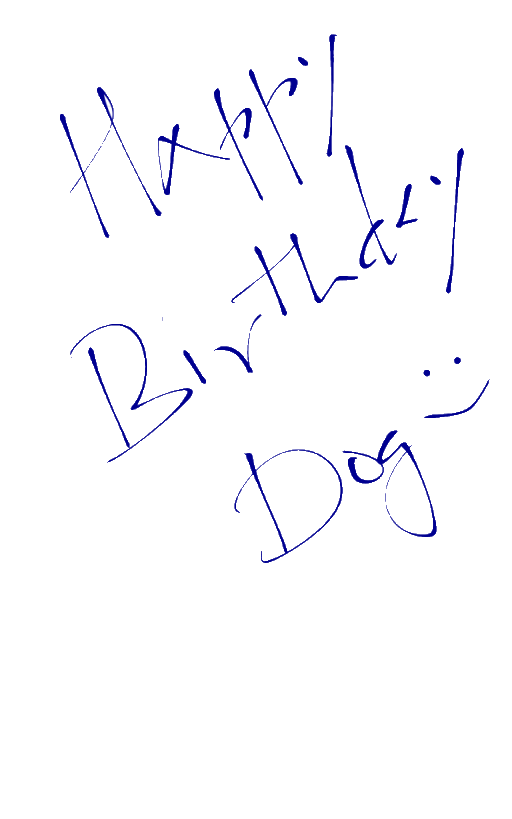 Happy
Birthday
Dog :)